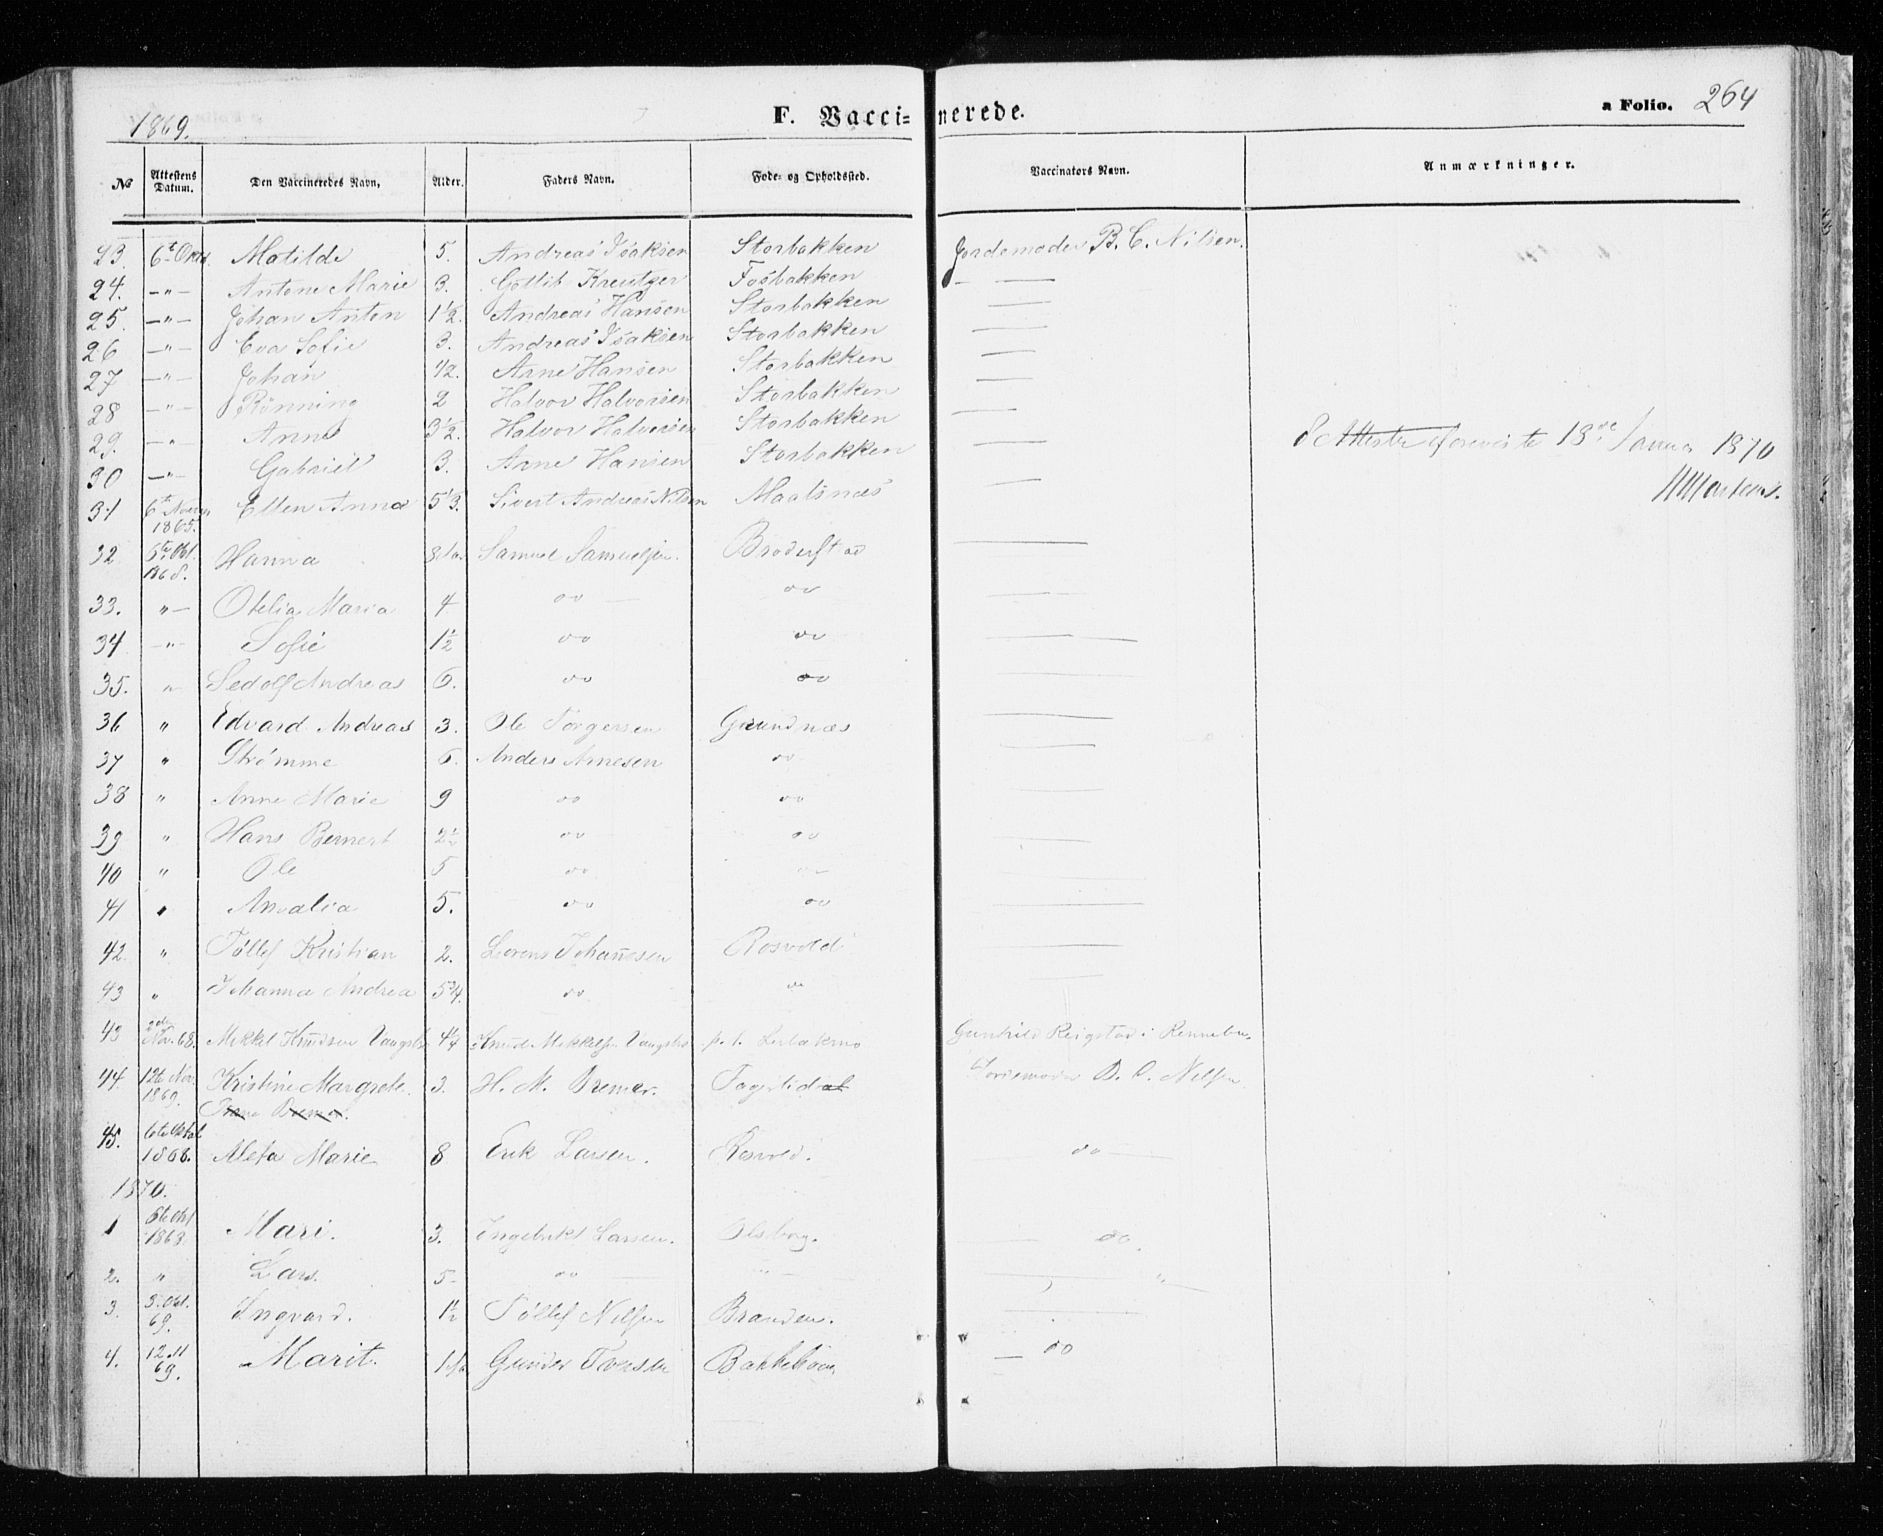 1869.
F. Vaccinerede.
a Folio. 264
No Attestens Datum. Den Vaccineredes Navn. Alder. Faders Navn. Føde- og Opholdssted. Vaccinators Navn. Anmærkninger.
23. 6t Matilde 5. Andreas Isaksen Storbakken Jordemoder B. C. Nilsen.
24. —"— Antone Marie 3. Gottlib Kreutger Fosbakken — —
25. —"— Johan Anton 1½. Andreas Hansen Storbakken —
26 —"— Eva Sofie 3. Andreas Isaksen Storbakken —
27 —"— Johan ½. Arne Hansen Storbakken —
28 —"— Rønning 2 Halvor Halvorsen Storbakken —
29. —"— Anne 3½. Halvor Halvorsen Storbakken —
30 —"— Gabriel 3. Arne Hansen Storbakken —
31 6te Novem 1865. Ellen Anna 5⅓. Sivert Andreas Nilsen Maalsnæs —
Attester foreviste 18de Januar 1870
32 5te Okt. 1868. Hanna Samuel Samuelsen. Broderstad —
33. "— Otelia Maria 4 do — do —
34 —"— Sofie 1½ do do —
35. " Sedolf Andreas 6. do do —
36 " Edvard Andreas 3. Ole Torgersen Grundnæs —
37 " Strømme 6. Anders Arnesen do —
38 " Anne Marie 9 do do —
39 " Hans Bernert 2½ do do —
40 " Ole 5 do —
41 " Amalia 5. do do —
42. " Tøllef Kristian 2. Lorens Johannesen Rosvold —
43 " Johanna Andrea 5¾. do " —
43 2den Nov. 68. Mekkel Knudsen 4¼ Knud Mekkelsen p. t. Gunhild Reigstad i Rennebu
44. 12te Nov. 1869. Kristine Margrete 3. H. M. Bremer. Fagerlidal Jordemoder B. C. Nilsen
Bremer.
45. 6te Oktob 1868. Aleta Marie 8 Erik Larsen. Rosvold. do —
1870.
1 6te Okt 1863 Mari. 3. Ingebrikt Larsen. Olsborg. — do.
2. " Lars. 5 — do — " — "
3. 3. Okt. 69. Ingvard. 1½ Tøllef Nilsen Branden. —
4. 12 11 69. Marit. 1½ Gunder Iversen — do